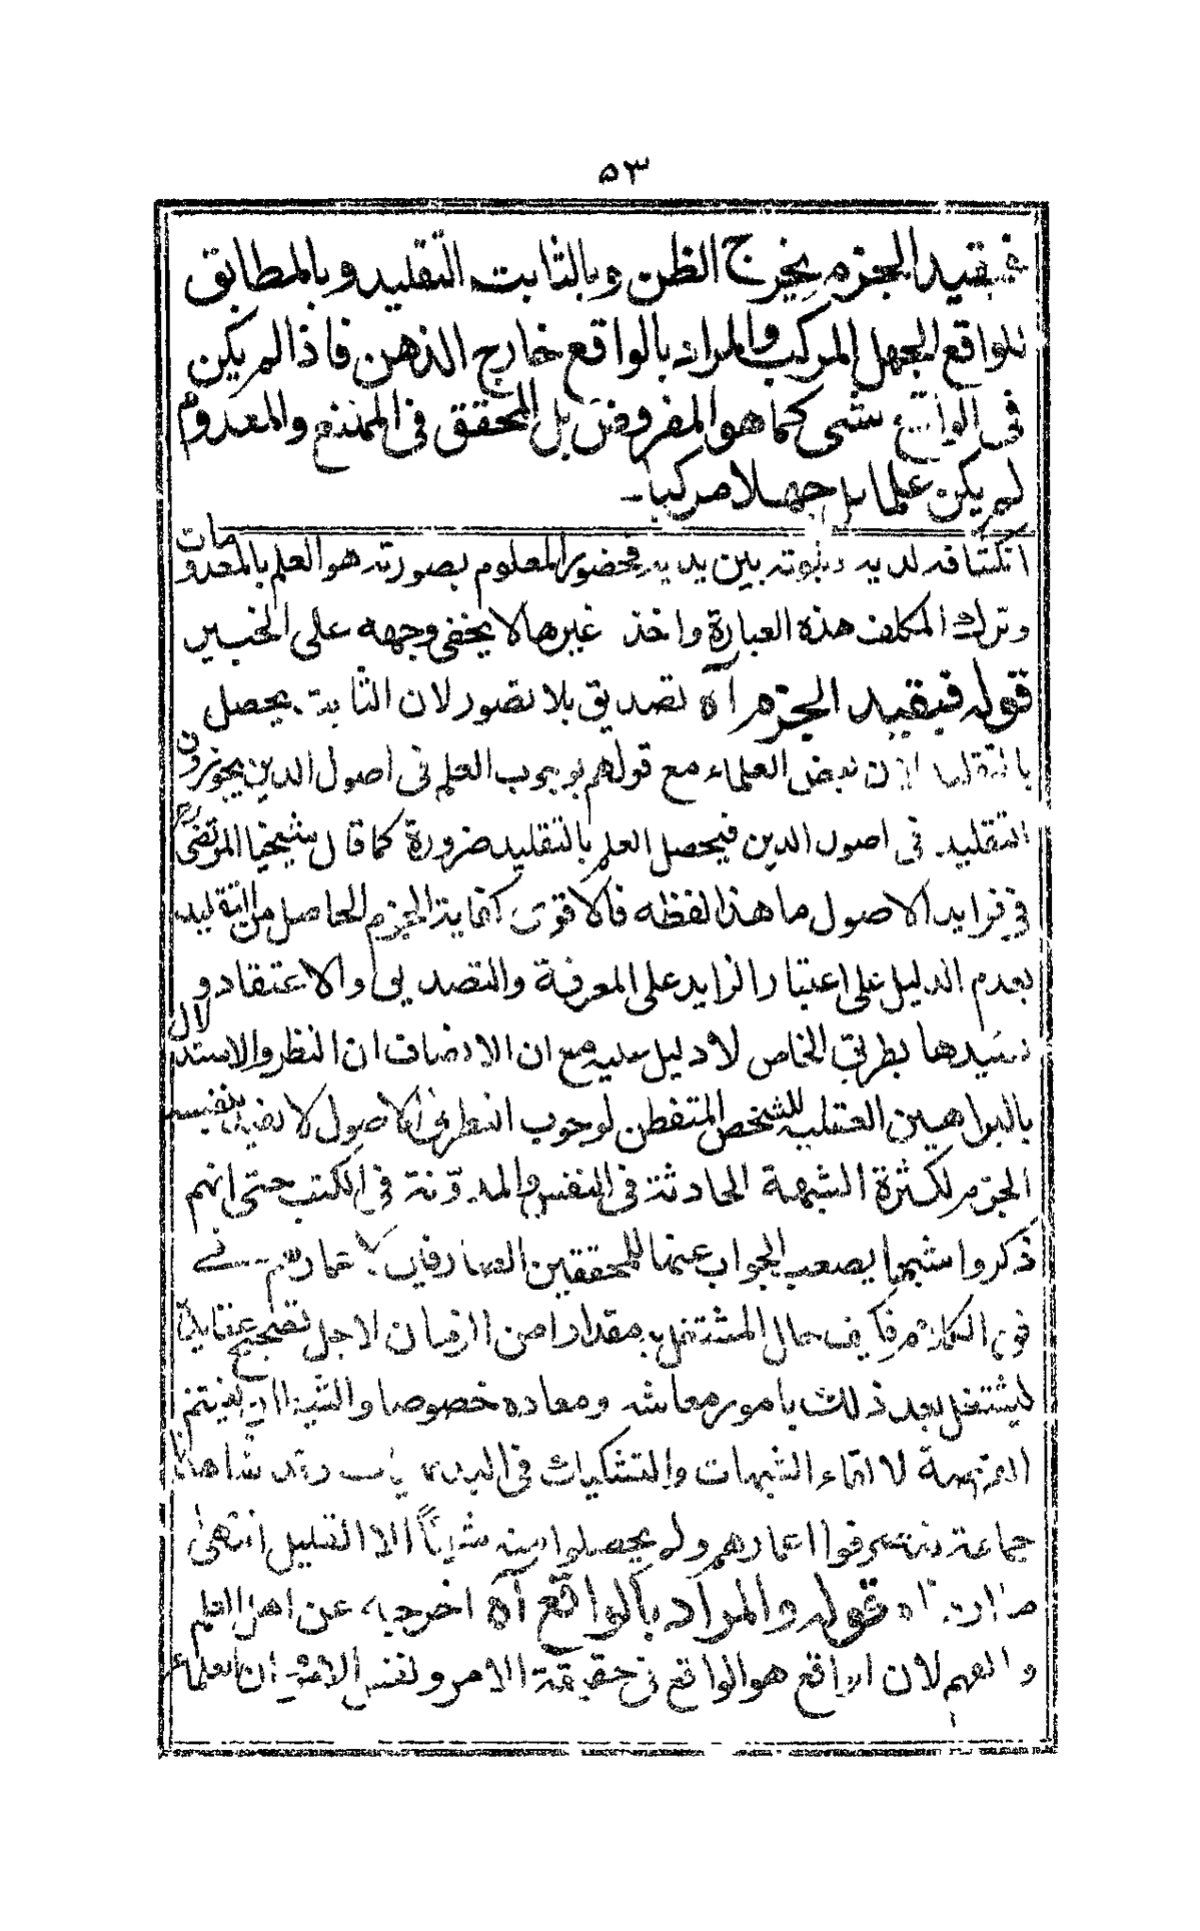 ٥٣
فبقيد الجزم يخرج الظن وبالثابت التقليد وبالمطابق
للواقع الجهل المركب والمراد بالواقع خارج الذهن فاذا لم يكن
فى الواقع شى كما هو المفروض بل المحقق فى الممتنع والمعدوم
لم يكن علما بل جهلا مركبا ـ
انكشافه لديه وثبوته بين يديه فحضور المعلوم بصورته هو العلم بالمعدومات
وترك المكلف هذه العبارة واخذ غيرها لا يخفى وجهه على الخبير
قوله فبقيد الجزم آه تصديق بلا تصور لان الثابت يحصل
بالتقليد لان بعض العلماء مع قولهم بوجوب العلم فى اصول الدين يجوزون
التقليد فى اصول الدين فيحصل العلم بالتقليد ضرورة كما قال شيخنا المرتضى
فى فرايد الاصول ما هذا لفظه فالاقوى كفاية الجزم الحاصل من التقليد
بعدم الدليل على اعتبار الزايد على المعرفة والتصديق والاعتقاد و
تقييدها بطريق الخاص لا دليل عليه مع ان الانصاف ان النظر والاستدلال
بالبراهين العقلية للشخص المتفطن لوجوب النظر فى الاصول لا يفيد بنفسه
الجزم لكثرة الشبهة الحادثة فى النفس والمدوّنة فى الكتب حتى انهم
ذكروا شبها يصعب الجواب عنها للمحققين الصارفين لاعمارهم فى
فن الكلام فكيف حال المشتغل به مقدارا من الزمان لاجل تصحيح عقايده
ليشتغل بعد ذلك بامور معاشه ومعاده خصوصا والشيطان يغتنم
الفرصة لالقاء الشبهات والتشكيك فى البديهيات وقد شاهدنا
جماعة قد صرفوا اعمارهم ولم يحصلوا منه شيئاً الا القليل انتهى
قوله والمراد بالواقع آه اخرجه عن اهل العلم
والفهم لان الواقع هو الواقع فى حقيقة الامر ونفس الامر ان العلماء